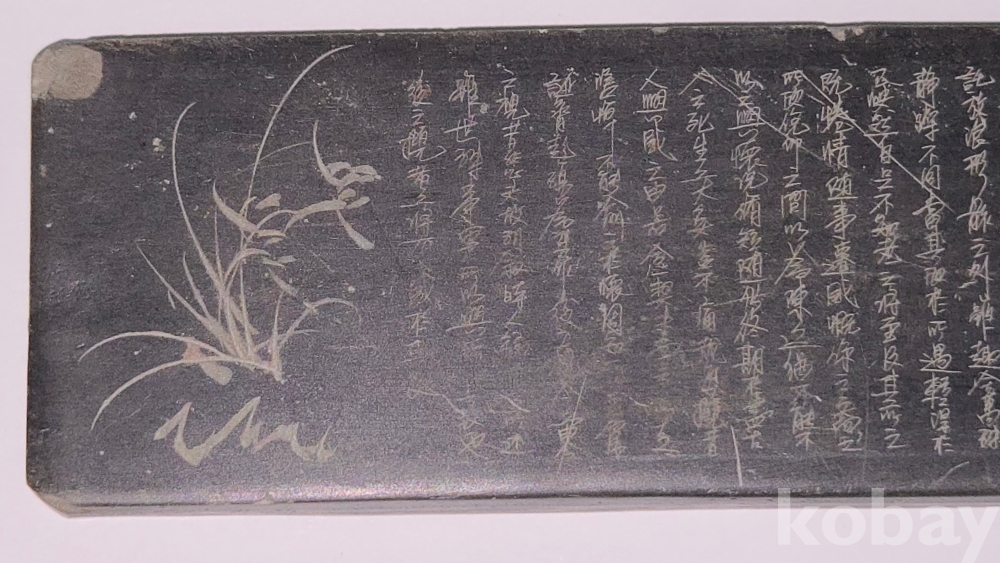 託放浪形骸之外雖趣舍萬殊
靜躁不同當其欣於所遇輙得於
己快然自足不知老之將至及其所之
既惓情隨事遷感慨係之矣向之
所欣俛仰之間以為陳迹猶不能不
以之興懷況脩短隨化終期於盡古
人云死生亦大矣豈不痛哉每攬昔
人興感之由若合一契未嘗不
嗟悼不能喻之於懷固知
誕齊彭殤為妄作後之
之視昔悲夫故列敘時人錄其所述
雖世殊事異所以興
後之覽者亦將有感於斯
kobay